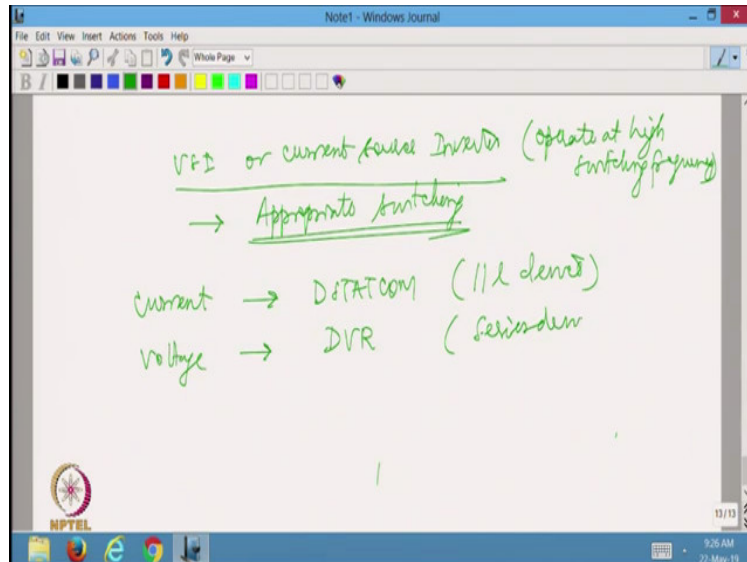 Note1 - Windows Journal
File Edit View Insert Actions Tools Help
Whole Page
B I
VSI or current source Inverter (operate at high
switching frequency)
→ Appropriate switching
current → DSTATCOM (11l device)
voltage → DVR (series dev
NPTEL
13/13
9:26 AM
22-May-19